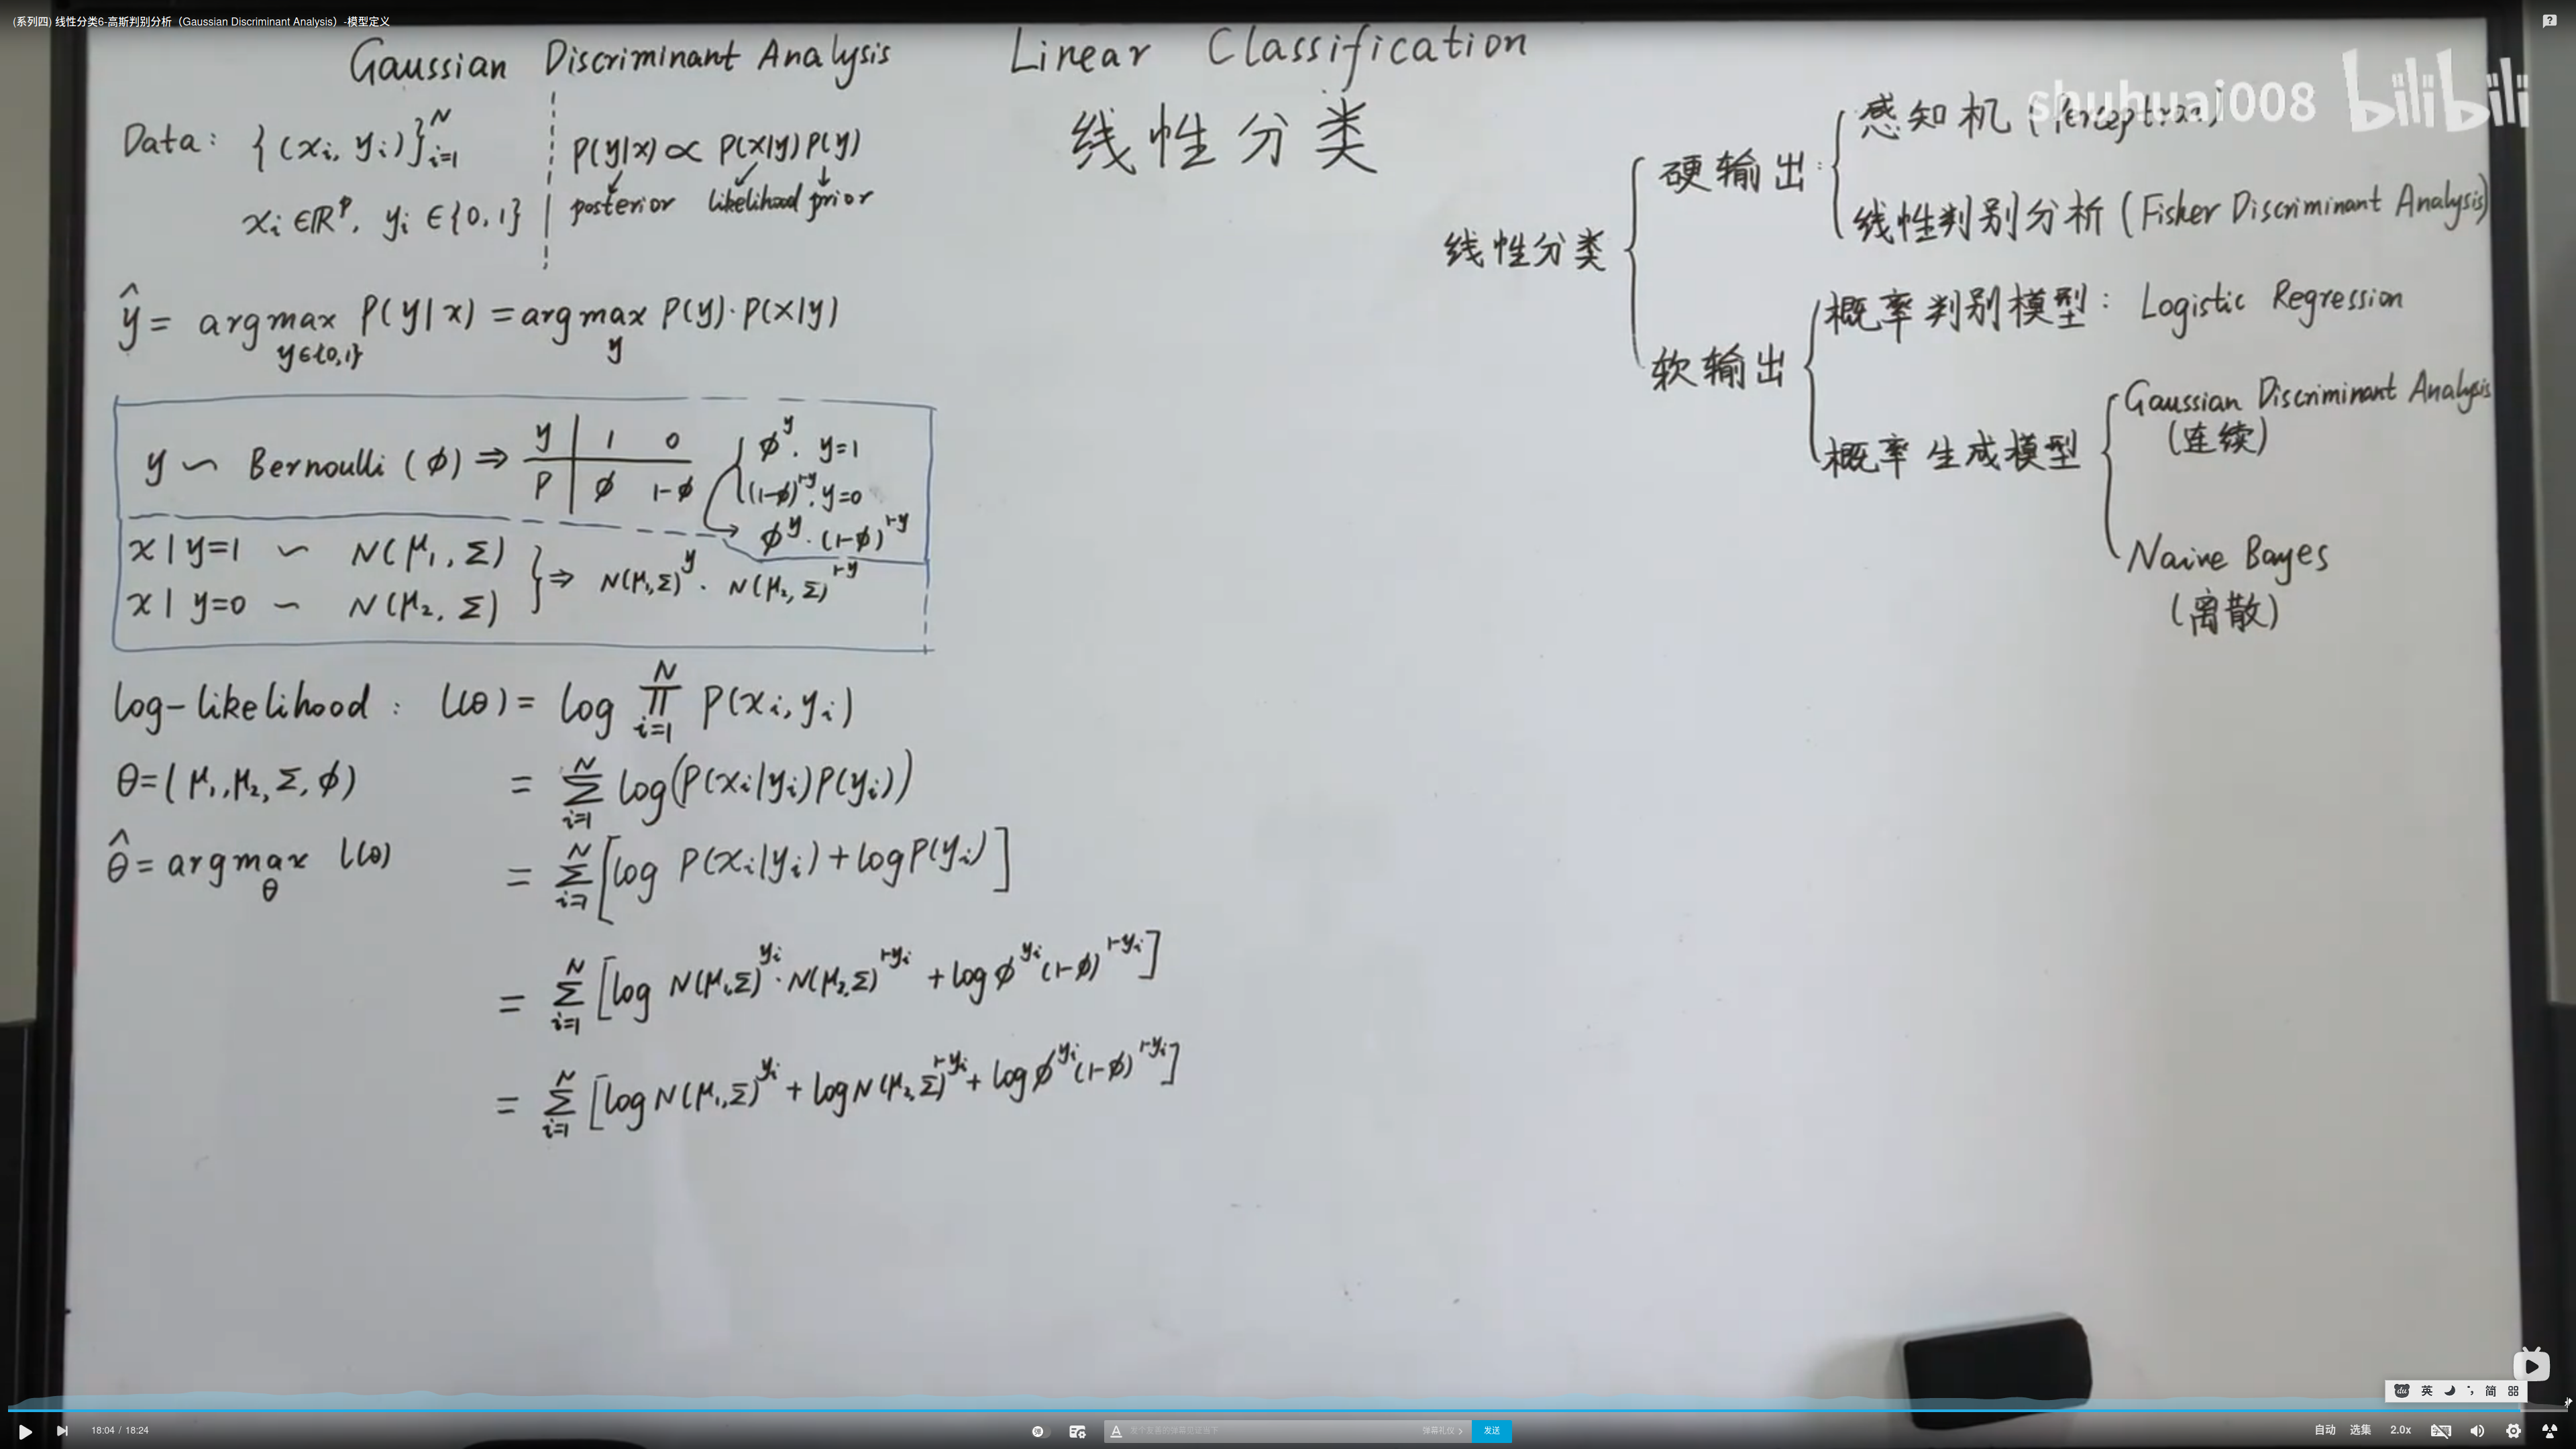 (系列四) 线性分类6-高斯判别分析（Gaussian Discriminant Analysis）-模型定义
Gaussian Discriminant Analysis
Linear Classification
线性分类
shuhuai008 bilibili
Data: {(xᵢ, yᵢ)}ᵢ₌₁ᴺ
xᵢ ∈ ℝᵖ, yᵢ ∈ {0, 1}
P(y|x) ∝ P(x|y) P(y)
posterior likelihood prior
ŷ = argmax_{y∈{0,1}} P(y|x) = argmax_y P(y)·P(x|y)
y ~ Bernoulli (φ) ⇒
y | 1 0
P | φ 1-φ
φ^y, y=1
(1-φ)^{1-y}, y=0
φ^y · (1-φ)^{1-y}
x | y=1 ~ N(μ₁, Σ)
x | y=0 ~ N(μ₂, Σ)
} ⇒ N(μ₁,Σ)^y · N(μ₂,Σ)^{1-y}
log-likelihood: l(θ) = log ∏_{i=1}^N P(xᵢ, yᵢ)
θ = (μ₁, μ₂, Σ, φ)
= Σ_{i=1}^N log(P(xᵢ|yᵢ)P(yᵢ))
θ̂ = argmax_θ l(θ)
= Σ_{i=1}^N [log P(xᵢ|yᵢ) + log P(yᵢ)]
= Σ_{i=1}^N [log N(μ₁,Σ)^{yᵢ} · N(μ₂,Σ)^{1-yᵢ} + log φ^{yᵢ}(1-φ)^{1-yᵢ}]
= Σ_{i=1}^N [log N(μ₁,Σ)^{yᵢ} + log N(μ₂,Σ)^{1-yᵢ} + log φ^{yᵢ}(1-φ)^{1-yᵢ}]
线性分类
硬输出:
感知机 (Perceptron)
线性判别分析 (Fisher Discriminant Analysis)
软输出
概率判别模型: Logistic Regression
概率生成模型
Gaussian Discriminant Analysis
(连续)
Naive Bayes
(离散)
英 简
18:04 / 18:24
弹幕礼仪 >
发送
自动 选集 2.0x